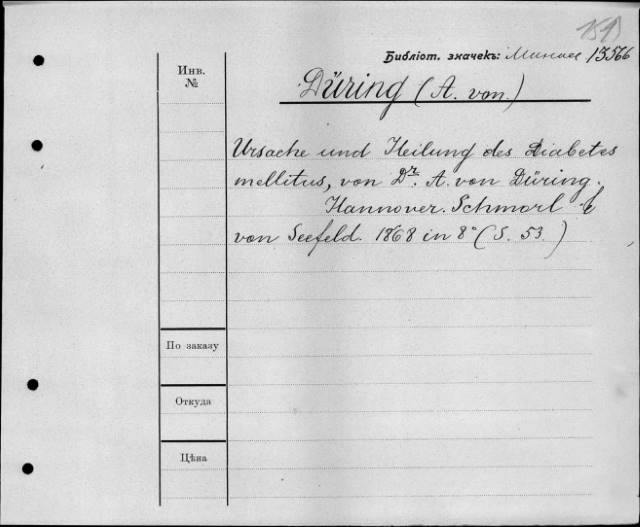 Библіот. значекъ: 13566
Инв.
№
Düring (A. von.)
Ursache und Heilung des Diabetes
mellitus, von Dr. A. von Düring.
Hannover. Schmorl &
von Seefeld. 1868 in 8° (S. 53.)
По заказу
Откуда
Цѣна